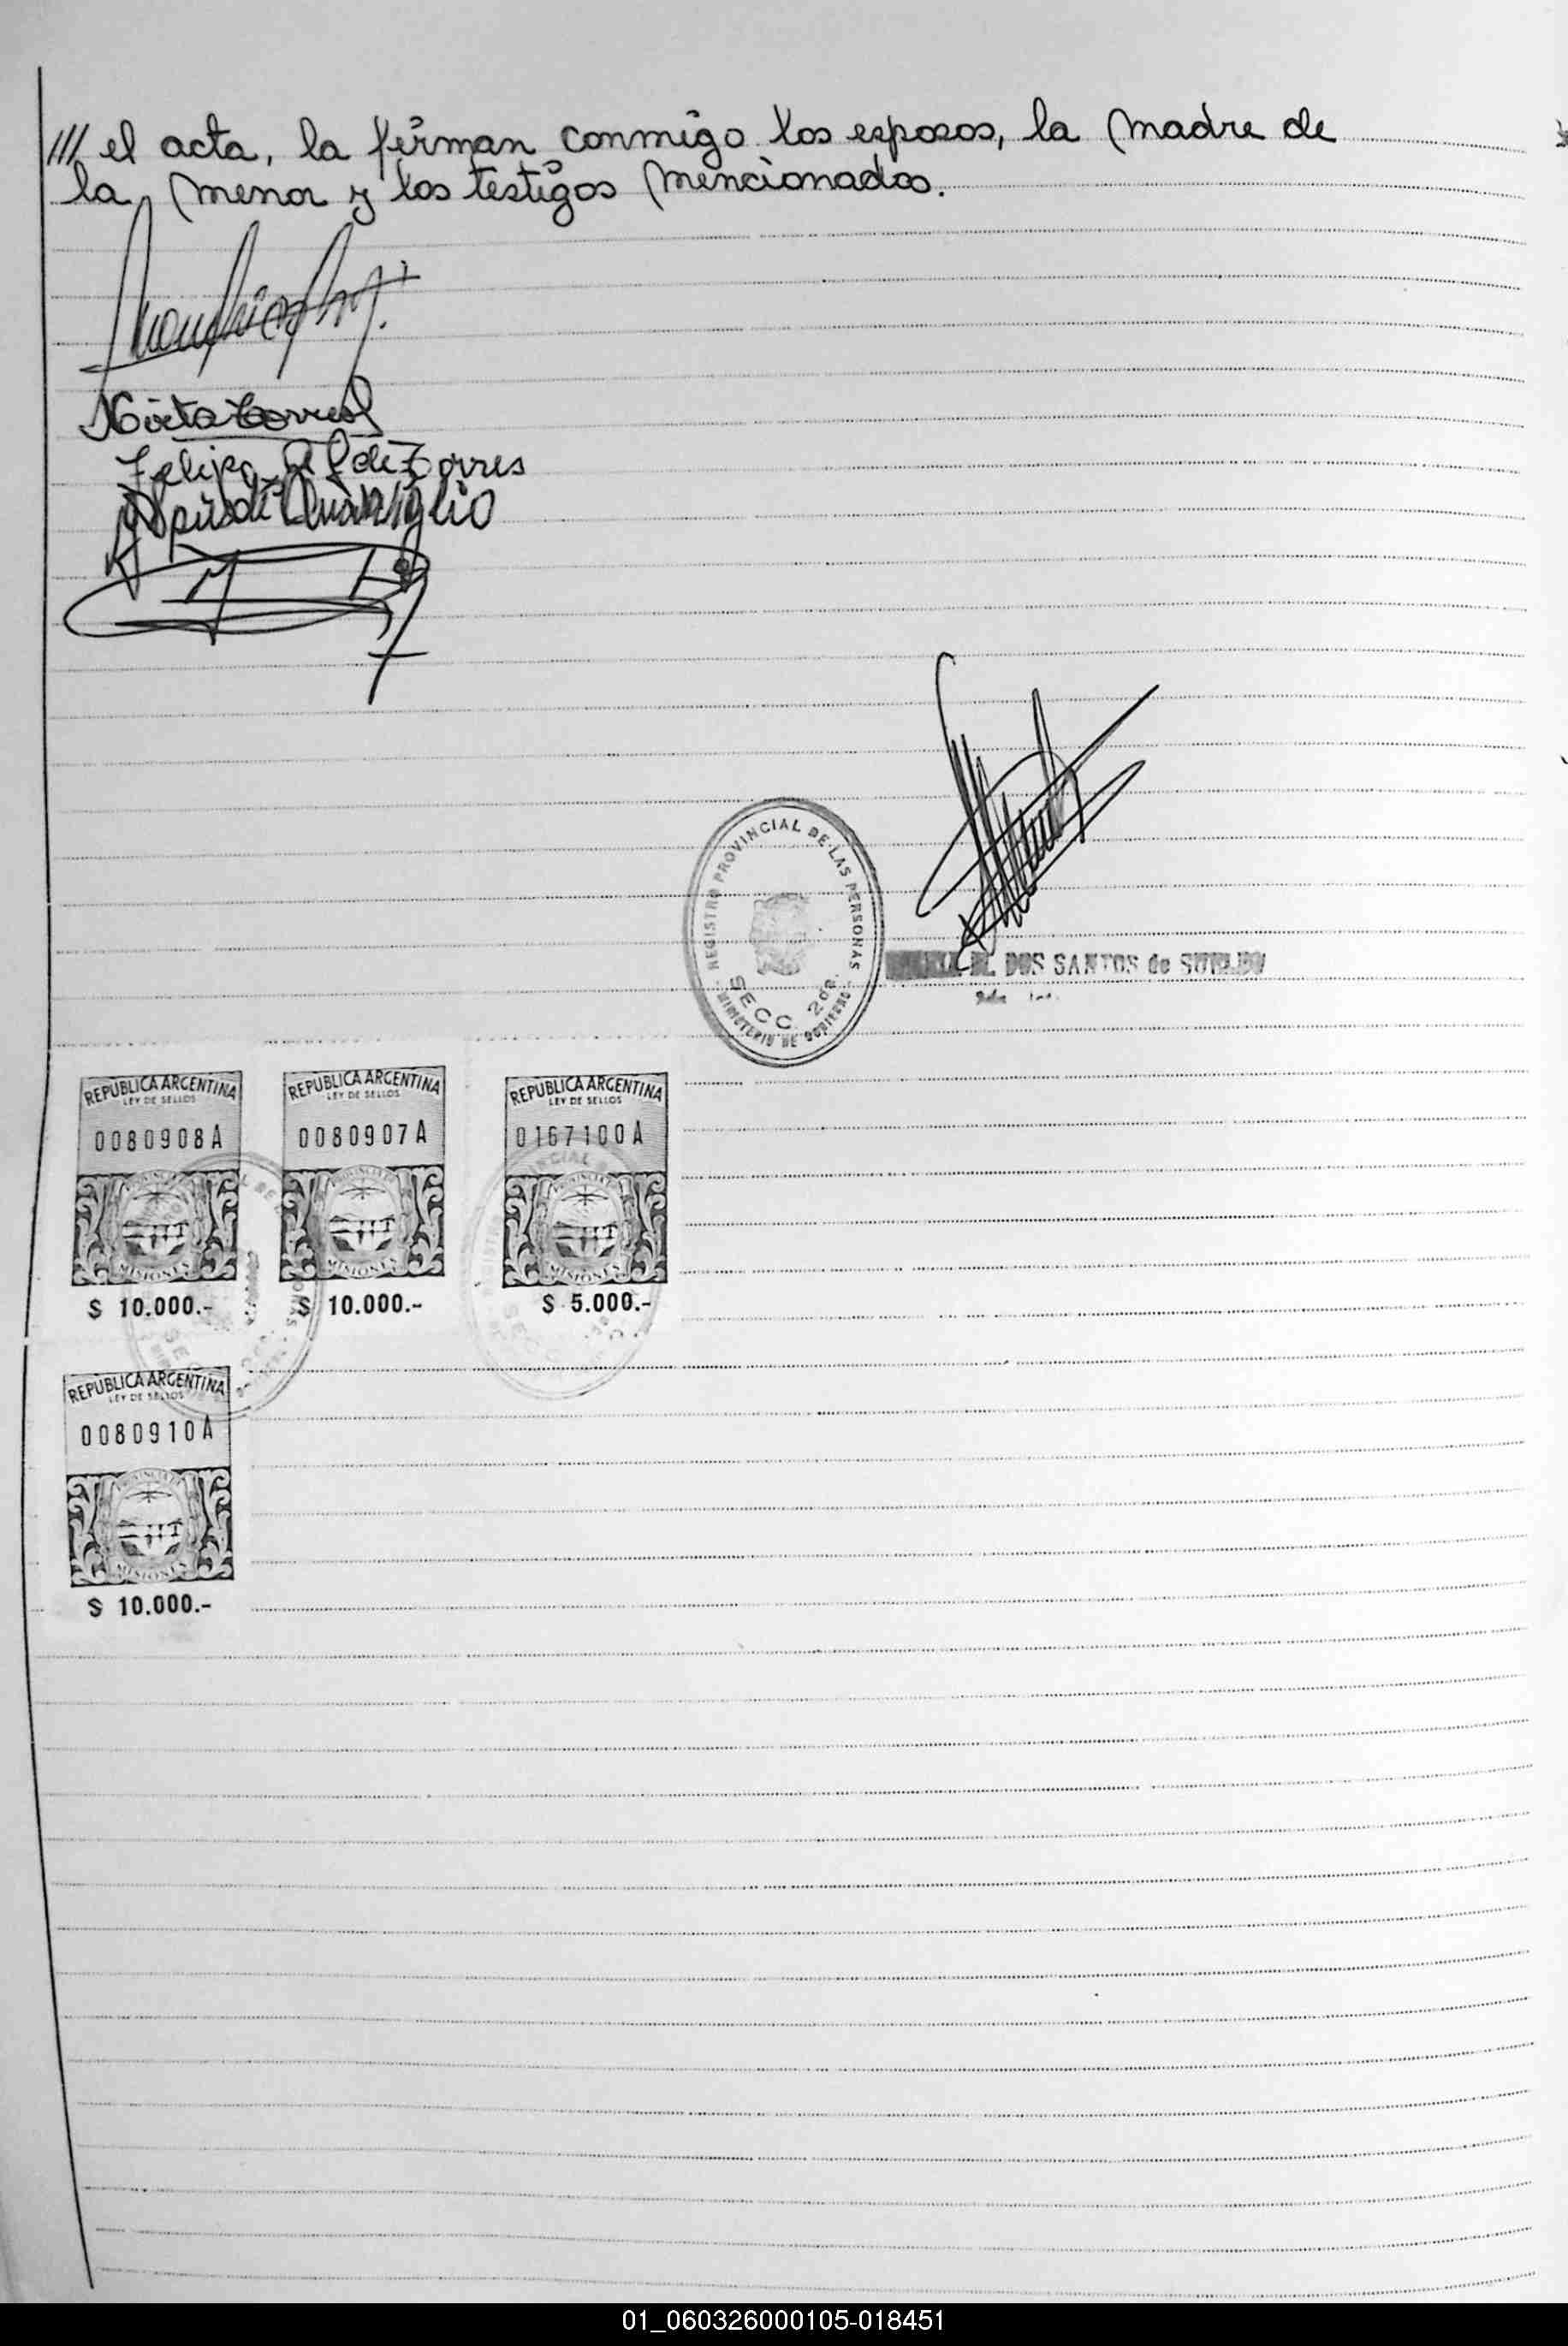 /// el acta, la firman conmigo los esposos, la madre de
la menor y los testigos mencionados.
Mirta Torres
Felipa A F de Torres
REGISTRO PROVINCIAL DE LAS PERSONAS
SECC. 2da.
MINISTERIO DE GOBIERNO
DOS SANTOS de
REPUBLICA ARGENTINA
LEY DE SELLOS
0080908A
MISIONES
$ 10.000.-
REPUBLICA ARGENTINA
LEY DE SELLOS
0080907A
PROVINCIA DE
MISIONES
$ 10.000.-
REPUBLICA ARGENTINA
LEY DE SELLOS
0167100A
MISIONES
$ 5.000.-
REPUBLICA ARGENTINA
LEY DE SELLOS
0080910A
MISIONES
$ 10.000.-
01_060326000105-018451